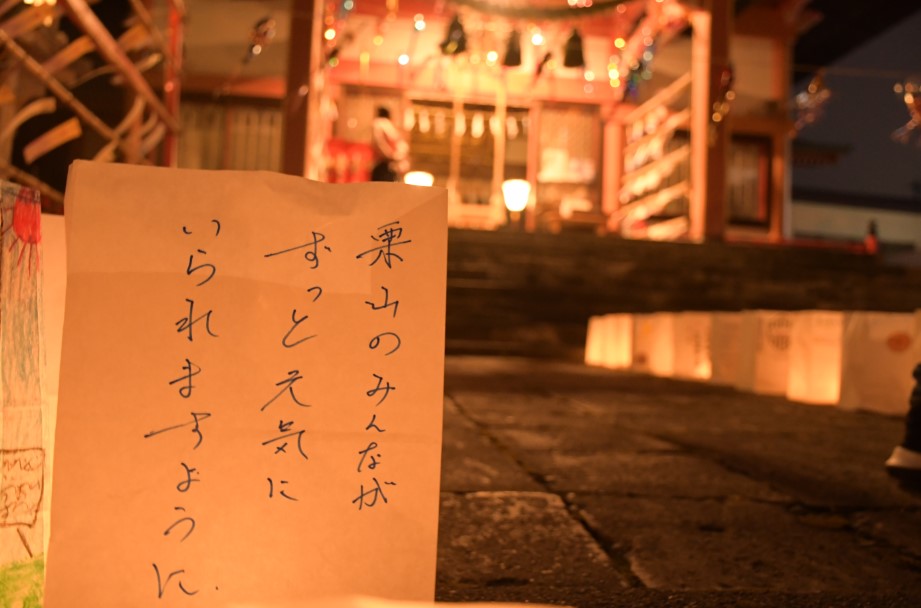 栗山のみんなが
ずっと元気に
いられますように.